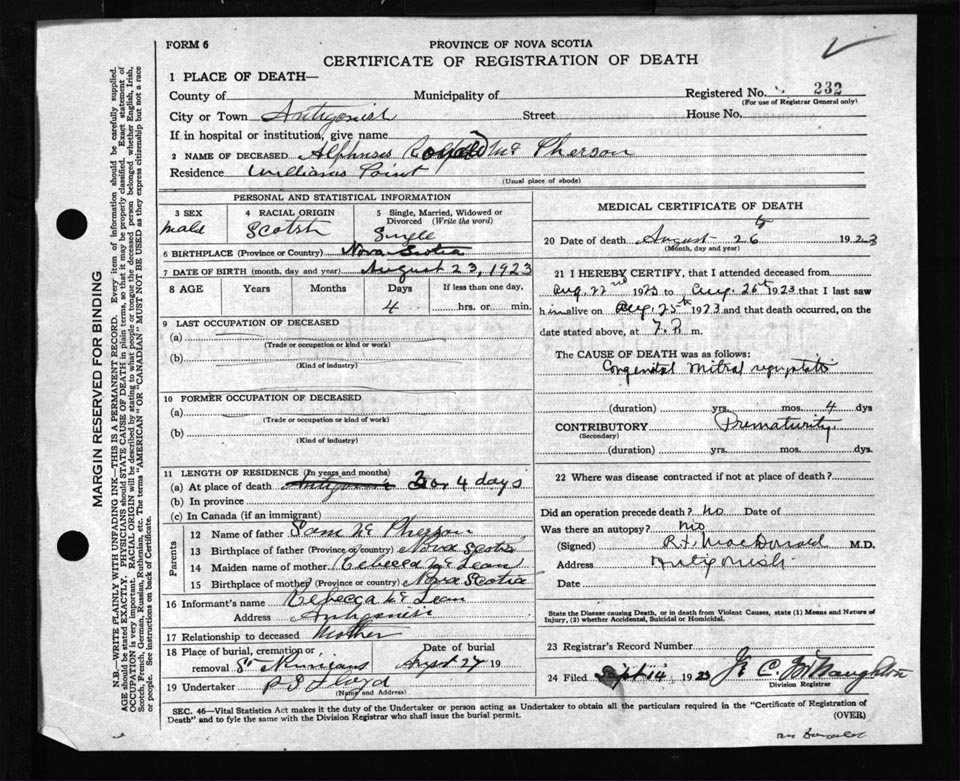 FORM 6
PROVINCE OF NOVA SCOTIA
CERTIFICATE OF REGISTRATION OF DEATH
1 PLACE OF DEATH—
County of Municipality of Registered No. 232
(For use of Registrar General only)
City or Town Antigonish Street House No.
If in hospital or institution, give name
2 NAME OF DECEASED Alphonsus Mc Pherson
Residence Williams Point
(Usual place of abode)
PERSONAL AND STATISTICAL INFORMATION
3 SEX 4 RACIAL ORIGIN 5 Single, Married, Widowed or
Divorced (Write the word)
male Scotsh Single
6 BIRTHPLACE (Province or Country) Nova Scotia
7 DATE OF BIRTH (month, day and year) August 23, 1923
8 AGE Years Months Days If less than one day,
4 hrs. or min.
9 LAST OCCUPATION OF DECEASED
(a)
(Trade or occupation or kind or work)
(b)
(Kind of industry)
10 FORMER OCCUPATION OF DECEASED
(a)
(Trade or occupation or kind of work)
(b)
(Kind of industry)
11 LENGTH OF RESIDENCE (In years and months)
(a) At place of death Antigonish 3 or 4 days
(b) In province
(c) In Canada (if an immigrant)
Parents
12 Name of father Sam Mc Pherson
13 Birthplace of father (Province or country) Nova Scotia
14 Maiden name of mother Rebecca Mc Lean
15 Birthplace of mother (Province or country) Nova Scotia
16 Informant's name Rebecca Mc Lean
Address Antigonish
17 Relationship to deceased Mother
18 Place of burial, cremation or Date of burial
removal St Ninians August 27 19
19 Undertaker P S Floyd
(Name and Address)
MEDICAL CERTIFICATE OF DEATH
20 Date of death August 26th 1923
(Month, day and year)
21 I HEREBY CERTIFY, that I attended deceased from
Aug. 22nd 1923 to Aug. 26th 1923 that I last saw
him alive on Aug. 25th 1923 and that death occurred, on the
date stated above, at 7.P. m.
The CAUSE OF DEATH was as follows:
Congenital mitral
(duration) yrs. mos. 4 dys
CONTRIBUTORY Prematurity.
(Secondary)
(duration) yrs. mos. dys.
22 Where was disease contracted if not at place of death?
Did an operation precede death? no Date of
Was there an autopsy? no
(Signed) R.F. MacDonald M.D.
Address Antigonish
Date
State the Disease causing Death, or in death from Violent Causes, state (1) Means and Nature of
Injury, (2) whether Accidental, Suicidal or Homicidal.
23 Registrar's Record Number
24 Filed Sept 14 1923 C McNaughton
Division Registrar
SEC. 46—Vital Statistics Act makes it the duty of the Undertaker or person acting as Undertaker to obtain all the particulars required in the "Certificate of Registration of
Death" and to fyle the same with the Division Registrar who shall issue the burial permit. (OVER)
MARGIN RESERVED FOR BINDING
N.B.—WRITE PLAINLY WITH UNFADING INK—THIS IS A PERMANENT RECORD. Every item of information should be carefully supplied.
AGE should be stated EXACTLY. PHYSICIANS should STATE CAUSE OF DEATH in plain terms, so that it may be properly classified. Exact statement of
OCCUPATION is very important. RACIAL ORIGIN will be described by stating to what people or tongue the deceased person belonged whether English, Irish,
Scotch, French, German, Russian, Ruthenian, etc. The terms "AMERICAN" OR "CANADIAN" MUST NOT BE USED as they express citizenship but not a race
or people. See instructions on back of Certificate.